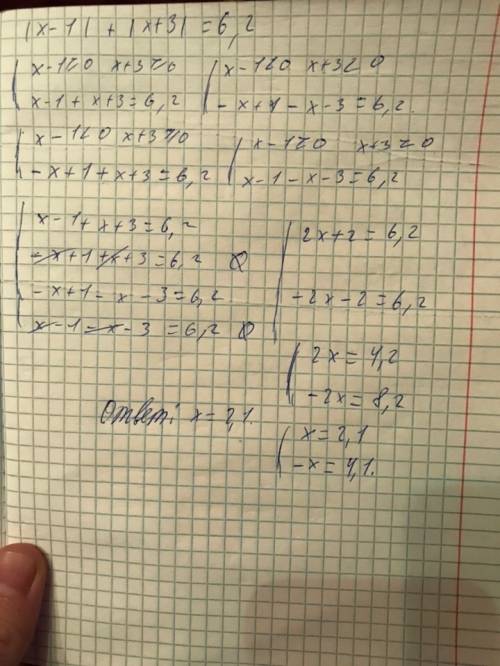 |x-1| + |x+3| = 6,2
x-1≥0 x+3≥0
x-1+x+3=6,2
x-1<0 x+3<0
-x+1-x-3=6,2
x-1<0 x+3≥0
-x+1+x+3=6,2
x-1≥0 x+3<0
x-1-x-3=6,2
x-1+x+3=6,2
-x+1+x+3=6,2 Ø
-x+1-x-3=6,2
x-1-x-3=6,2 Ø
2x+2=6,2
-2x-2=6,2
2x=4,2
-2x=8,2
x=2,1
-x=4,1.
Ответ: x=2,1.